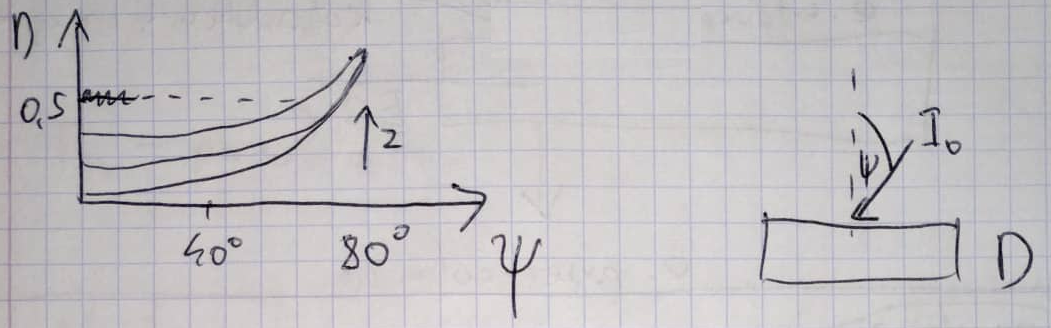 η
0,5
Z
40°
80°
ψ
ψ
I₀
D